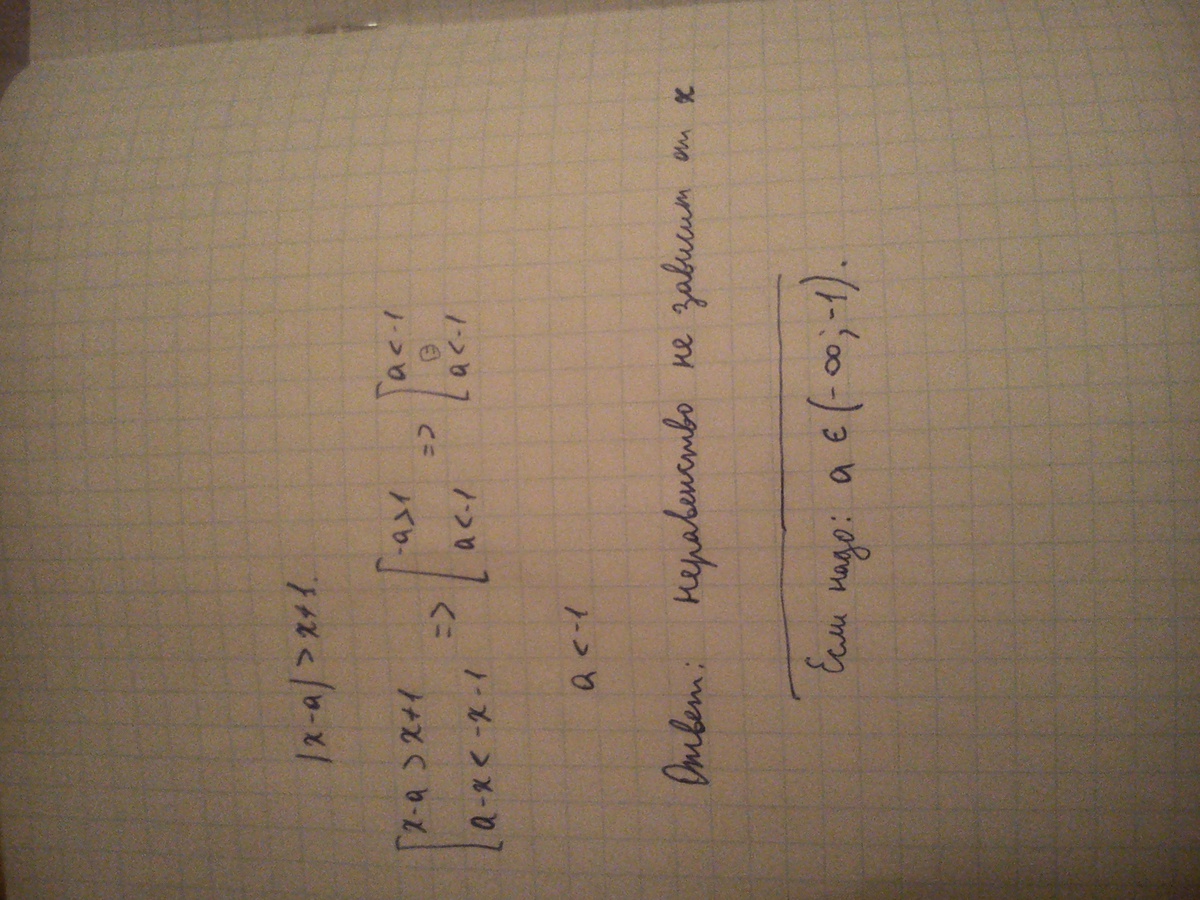 |x-a|>x+1.
[x-a>x+1 => [-a>1 => [a<-1
[a-x<-x-1 [a<-1 [a<-1
a<-1
Ответ: неравенство не зависит от x
Если надо: a ∈ (-∞; -1).